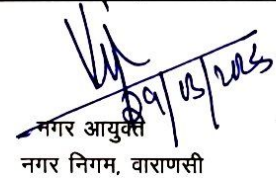 09/03/2025
नगर आयुक्त
नगर निगम, वाराणसी